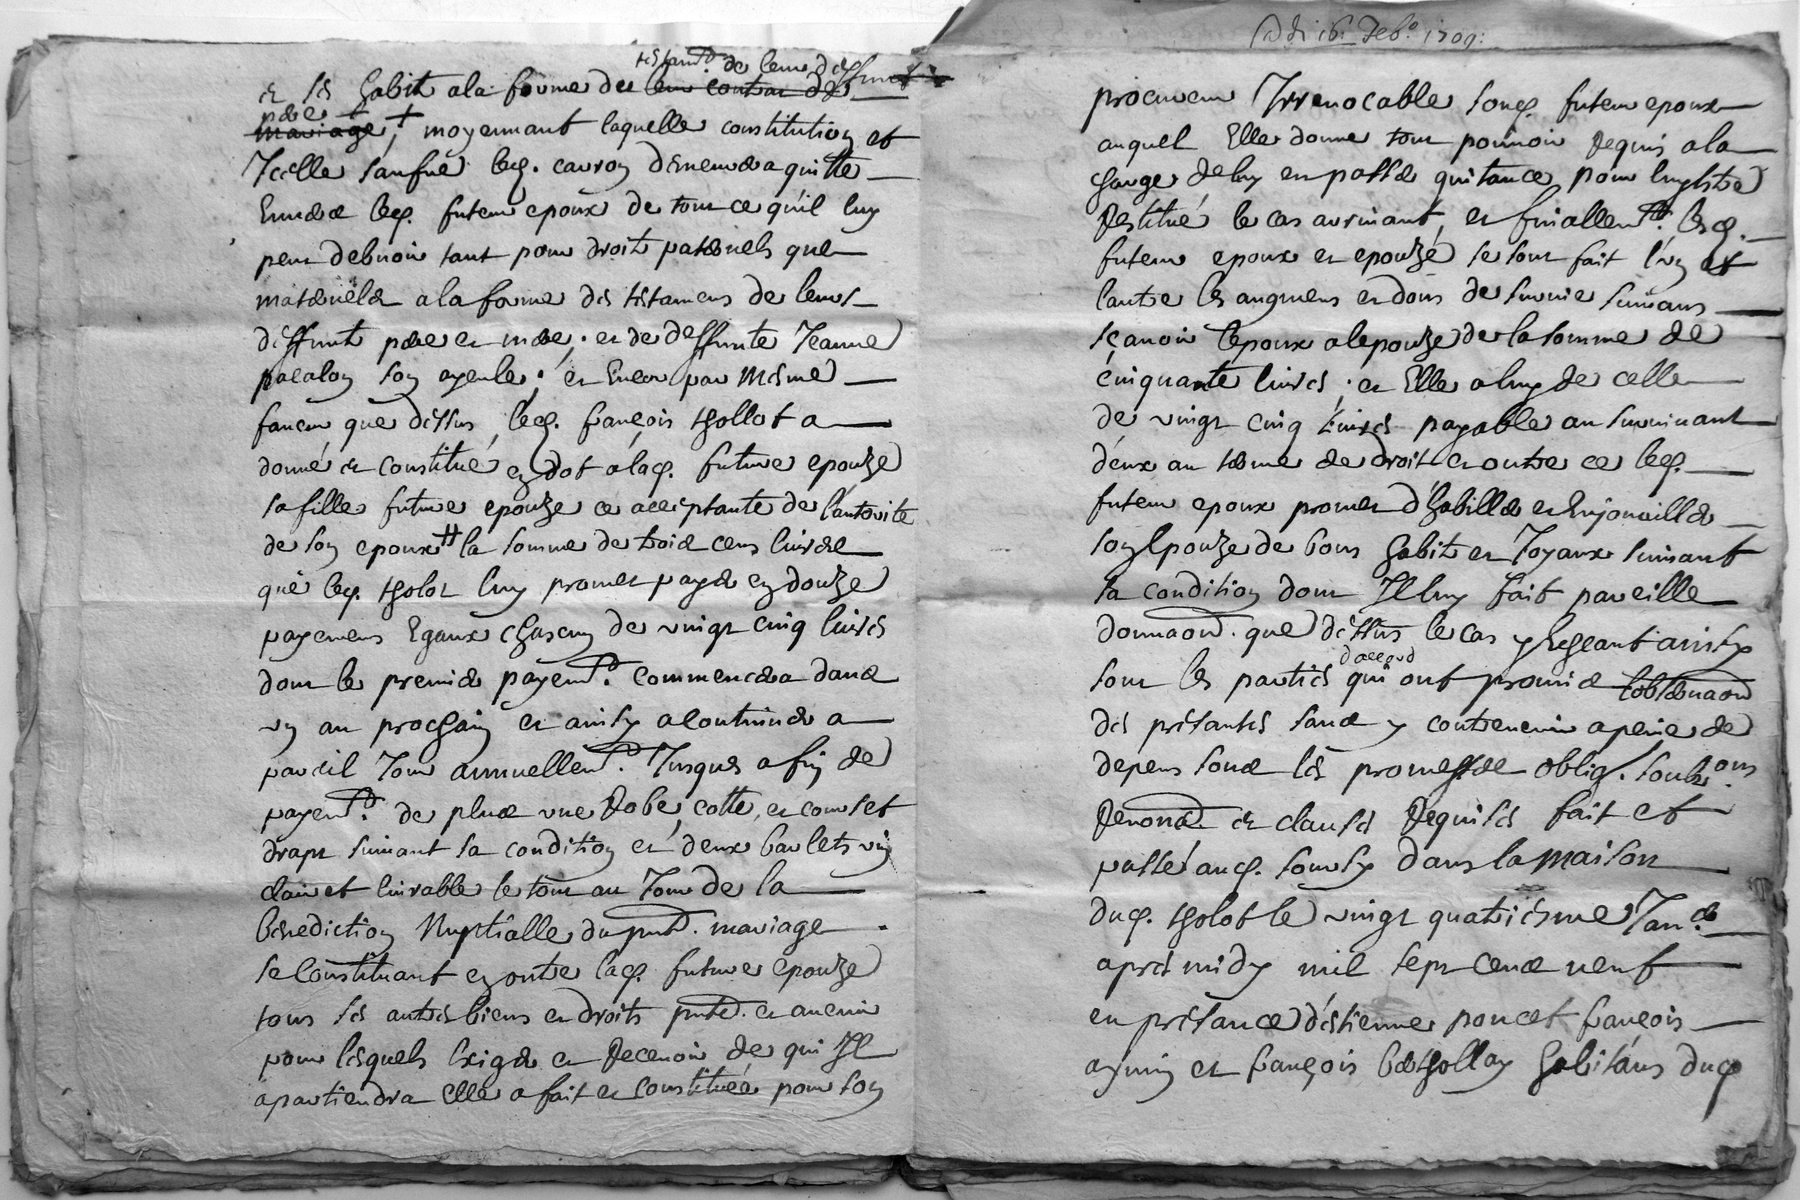 testamt. de leur deffunt
et ses habits a la forme du leur contrat de
pere +
mariage, + moyennant laquelle constitution et
Icelle saufue led. cauron demeurera quitte
Enuers led. futeur epoux de tout ce qu'il luy
peut debuoir tant pour droits paternels que
maternels a la forme des testamens de leurs
deffunts pere et mere. et de deffunte Jeanne
pacalon son ayeule; et Encor par mesme
faueur que dessus, led. françois thollot a
donné et constitué en dot a lad. future epouze
sa fille future epouze ce acceptante de l'autorite
de son epoux # la somme de trois cens liures
que led. tholot luy promet payer en douze
payemens Egaux chascun de vingt cinq liures
dont le premier payemt. commencera dans
vn an prochain et ainsy a continuer a
pareil Jour annuellemt. Jusques a fin de
payemt. de plus vne Robe, cotte, et corset
drapt suiuant sa condition et deux barlets vin
clairet liurable le tout au Jour de la
benediction Nuptialle du pnt. mariage
se Constituant en outre lad. future epouze
tous ses autres biens et droits pnts. et auenir
pour lesquels Exiger et Receuoir de qui Il
apartiendra elle a fait et constitué pour son
Adi 16 Feb.º 1709:
procureur Irreuocable sond. futeur epoux
auquel Elle donne tout pouuoir Requis a la
charge de luy en passer quitance pour luy estre
Restitué le cas arriuant, et finallemt. lesd.
futeurs epoux et epouzé se sont fait l'vn et
lautre les augmens et dons de suruie suiuans
sçauoir l'epoux a lepouze de la somme de
cinquante liures; et Elle a luy de celle
de vingt cinq liures payable au suruiuant
deux au terme de droit et outre ce led.
futeur epoux promet d'habiller et Enjouailler
son Epouze de bons habits et Joyaux suiuant
sa condition dont Il luy fait pareille
donnaon. que dessus le cas y Escheant ainsy
daccord
sont les parties qui ont promis lobseruaon
des presantes sans y contreuenir a peine de
depens sous les promesses oblig. soubs.ons
Renonc. et clauses Requises fait et
passé aud. soursy dans la maison
dud. tholot le vingt quatriesme Janer.
apres midy mil sept cens neuf
en presance d'estienne poncet françois
aymin et françois berthollay habitans dud